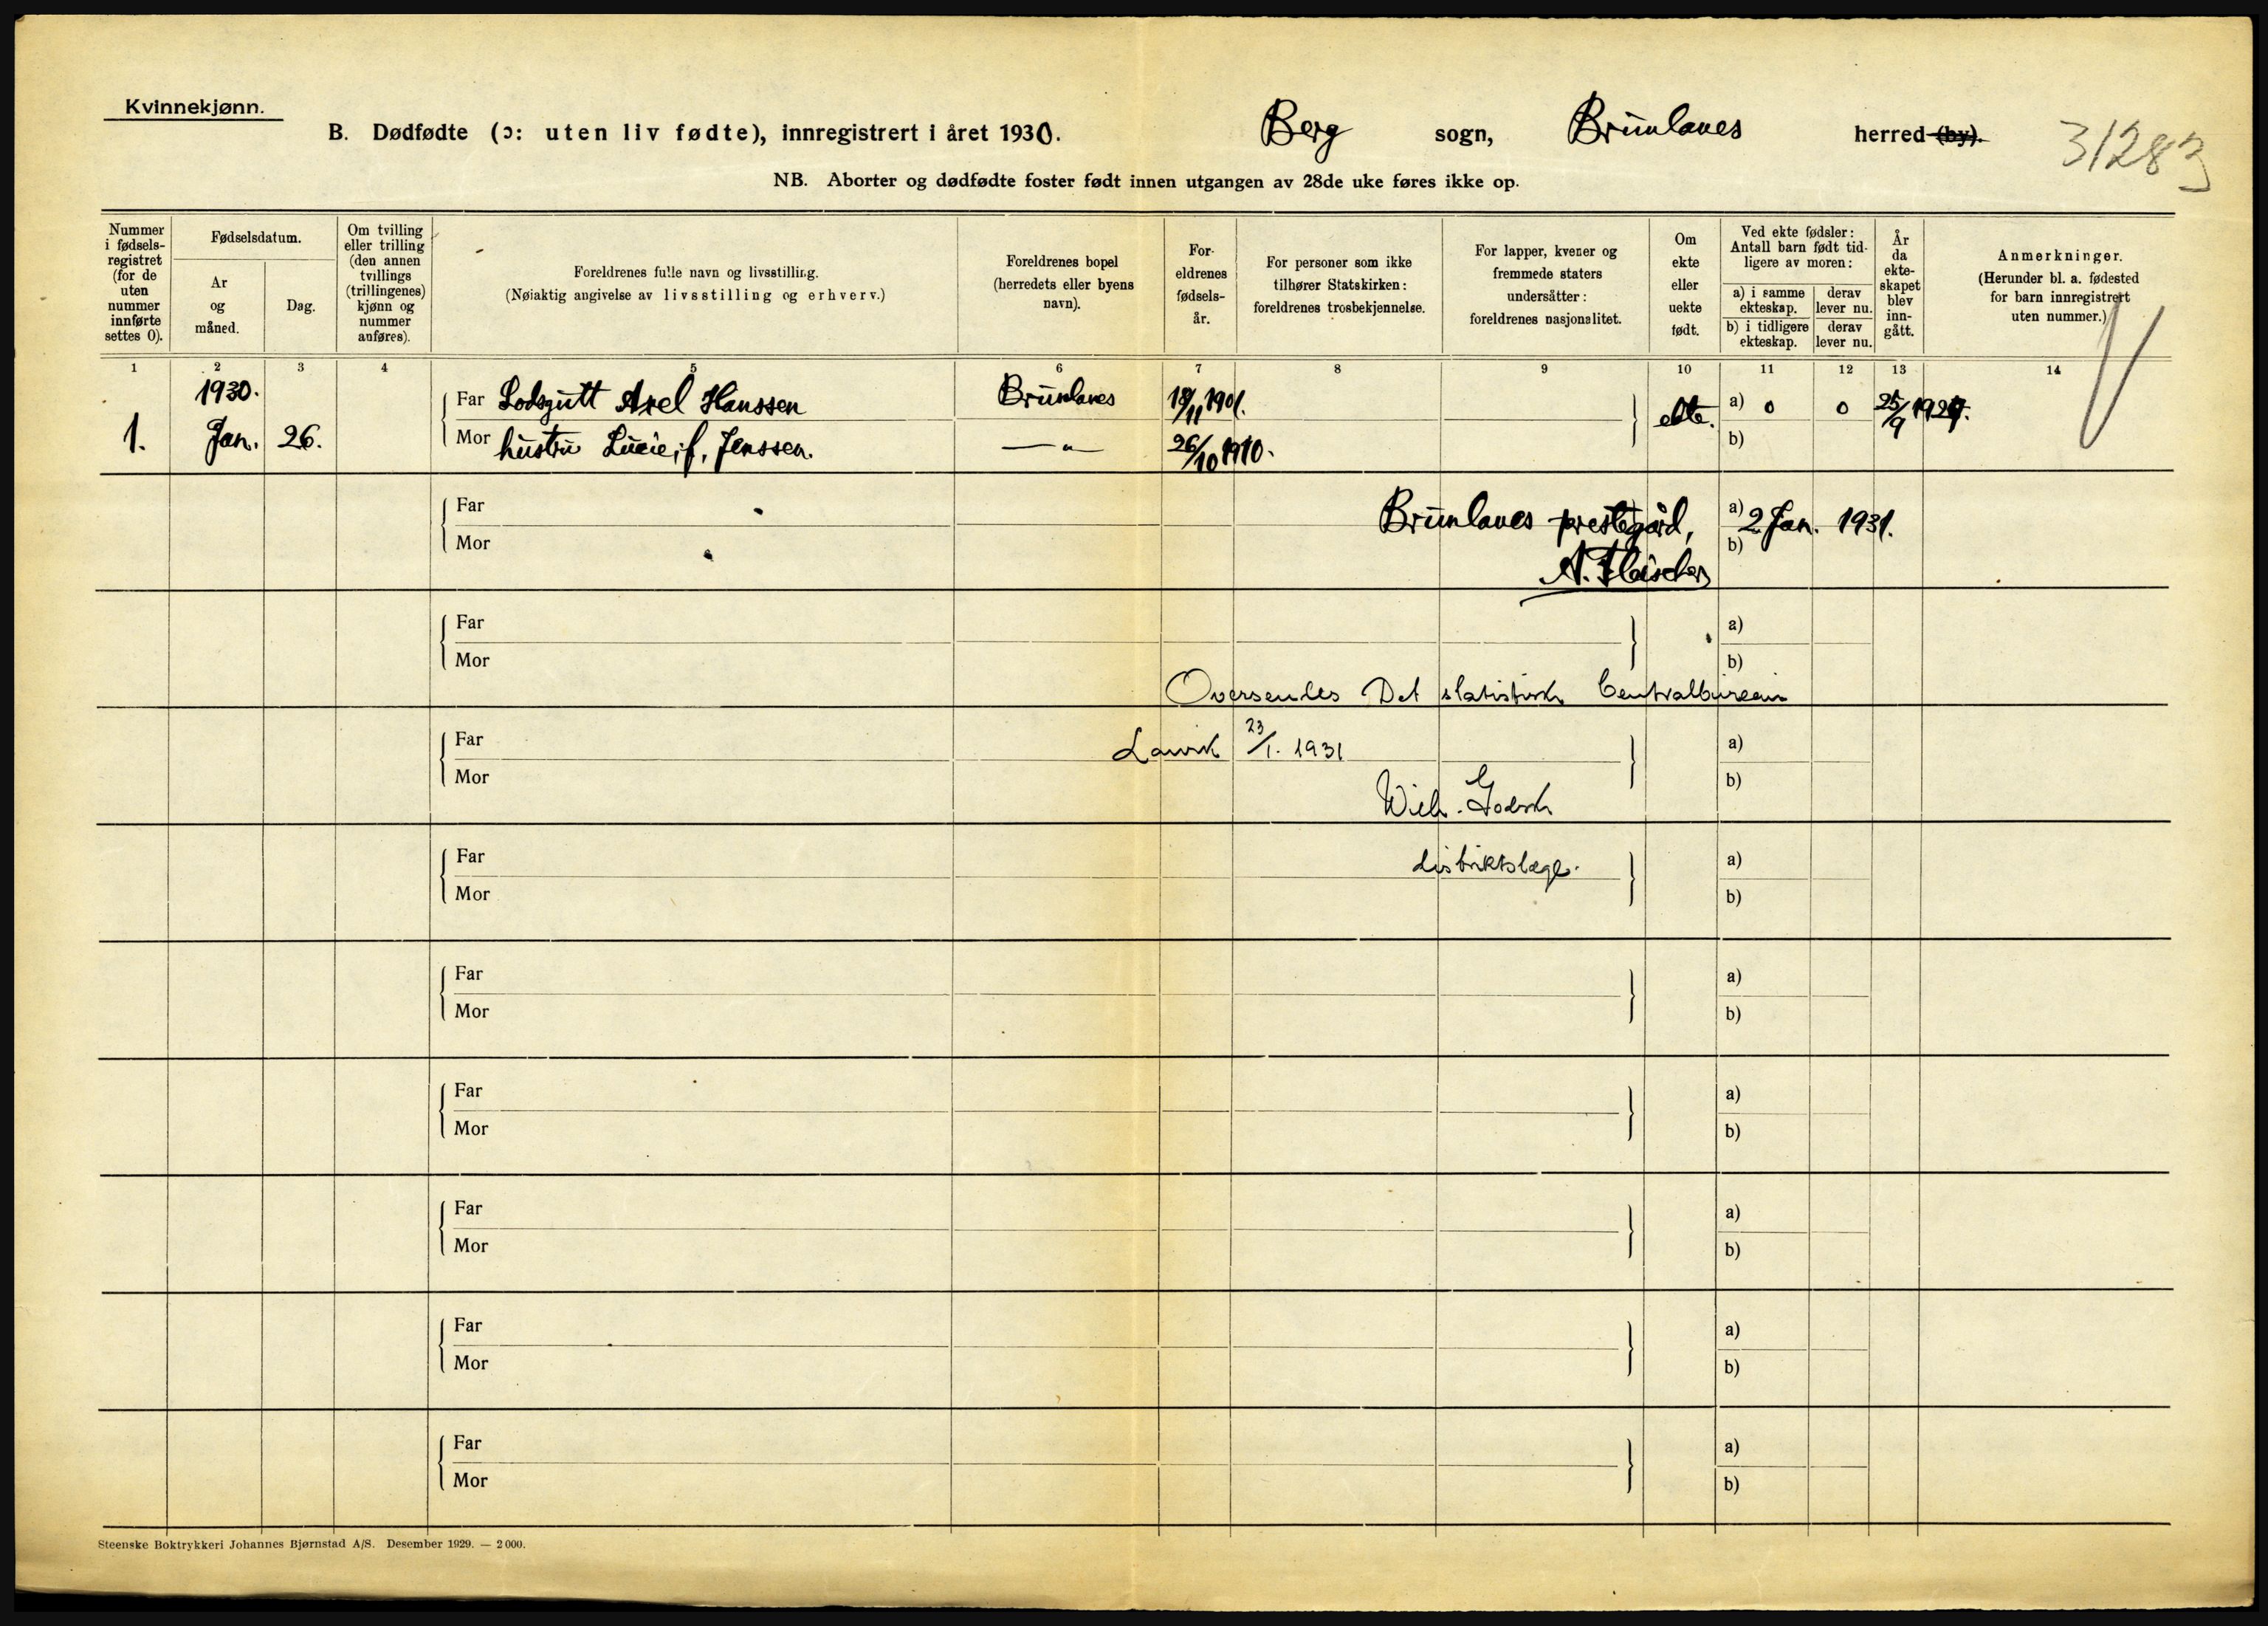 Kvinnekjønn.
B. Dødfødte (ɔ: uten liv fødte), innregistrert i året 1930. Berg sogn, Brunlanes herred (by).
31283
NB. Aborter og dødfødte foster født innen utgangen av 28de uke føres ikke op.
Nummer i fødsels- registret (for de uten nummer innførte settes 0).
Fødselsdatum.
År og måned.
Dag.
Om tvilling eller trilling (den annen tvillings (trillingenes) kjønn og nummer anføres).
Foreldrenes fulle navn og livsstilling.
(Nøiaktig angivelse av livsstilling og erhverv.)
Foreldrenes bopel (herredets eller byens navn).
For- eldrenes fødsels- år.
For personer som ikke tilhører Statskirken: foreldrenes trosbekjennelse.
For lapper, kvener og fremmede staters undersåtter: foreldrenes nasjonalitet.
Om ekte eller uekte født.
Ved ekte fødsler: Antall barn født tid- ligere av moren:
a) i samme ekteskap.
derav lever nu.
b) i tidligere ekteskap.
derav lever nu.
År da ekte- skapet blev inn- gått.
Anmerkninger.
(Herunder bl. a. fødested for barn innregistrert uten nummer.)
1 2 3 4 5 6 7 8 9 10 11 12 13 14
1930.
Far Lodsgutt Axel Hanssen Brunlanes 18/11 1901. ekte. a) 0 0 25/9 1929.
1. Jan. 26. Mor hustru Lucie, f. Jenssen. — " — 26/10 1910. b)
Far Brunlanes prestegård, a) 2 Jan. 1931.
Mor b)
A. Fleischer
Far a)
Mor b)
Oversendes Det statistiske Centralbureau
Far Larvik 23/1. 1931 a)
Mor b)
Wilh.
Far distriktslæge. a)
Mor b)
Far a)
Mor b)
Far a)
Mor b)
Far a)
Mor b)
Far a)
Mor b)
Far a)
Mor b)
Steenske Boktrykkeri Johannes Bjørnstad A/S. Desember 1929. — 2 000.